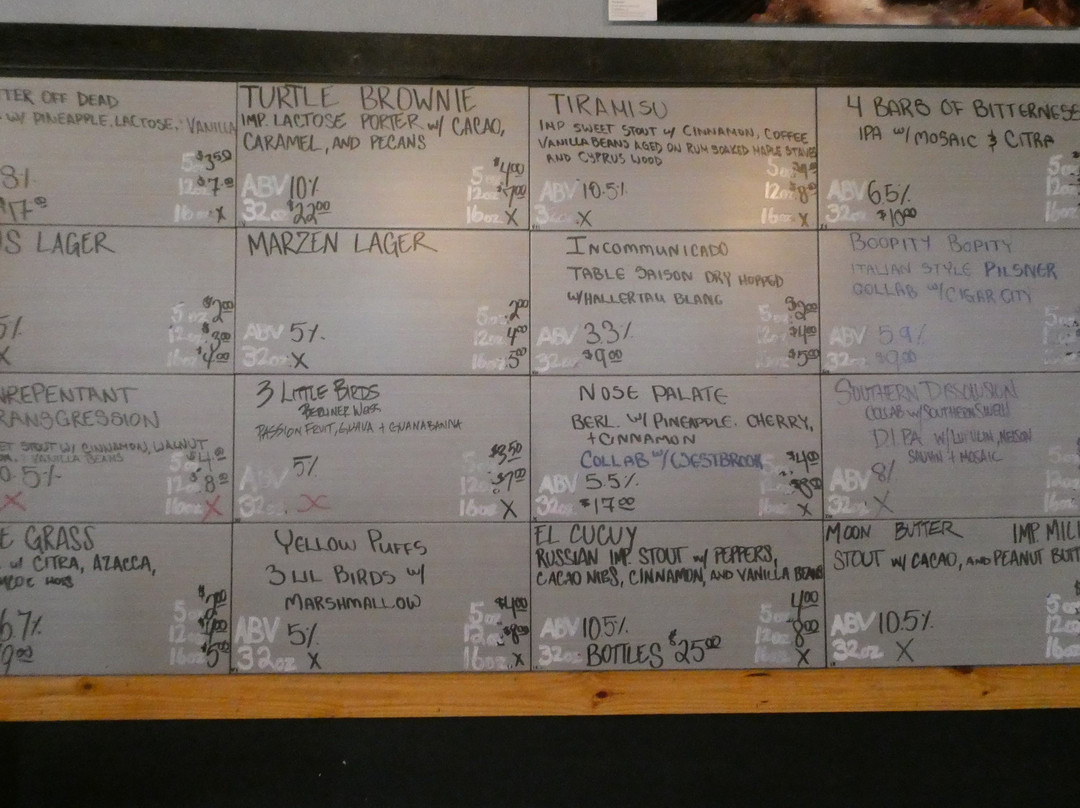 TER OFF DEAD
W/ PINEAPPLE, LACTOSE, VANILLA
5oz $3.50
8%
12oz $7.00
$17.00
16oz X
TURTLE BROWNIE
IMP. LACTOSE PORTER W/ CACAO,
CARAMEL, AND PECANS
5oz $4.00
ABV 10%
12oz $7.00
32oz $22.00
16oz X
TIRAMISU
IMP SWEET STOUT W/ CINNAMON, COFFEE
VANILLA BEANS AGED ON RUM SOAKED MAPLE STAVES
AND CYPRUS WOOD
5oz
ABV 10.5%
12oz $8.00
X
16oz X
4 BARS OF BITTERNESS
IPA W/ MOSAIC & CITRA
5oz
ABV 6.5%
12oz
32oz $10.00
16oz
S LAGER
5oz $2.00
5%
12oz
X
16oz $4.00
MARZEN LAGER
5oz 2.00
ABV 5%
12oz 4.00
32oz X
16oz 5.00
INCOMMUNICADO
TABLE SAISON DRY HOPPED
W/HALLERTAU BLANC
5oz
ABV 3.3%
12oz $4.00
32oz $9.00
16oz $5.00
BOOPITY BOPITY
ITALIAN STYLE PILSNER
COLLAB W/ CIGAR CITY
ABV 5.9%
32oz $9.00
NREPENTANT
RANSGRESSION
ET STOUT W/ CINNAMON, WALNUT
VANILLA BEANS
5oz $4.00
0.5%
12oz $8.00
X
16oz X
3 LITTLE BIRDS
BERLINER WEISS
PASSION FRUIT, GUAVA + GUANABANNA
$3.50
5%
12oz $7.00
32oz X
16oz X
NOSE PALATE
BERL. W/ PINEAPPLE, CHERRY,
+ CINNAMON
COLLAB W/ WESTBROOK
5oz $4.00
ABV 5.5%
12oz $8.00
32oz $17.00
16oz X
SOUTHERN DISSOLUSION
COLLAB W/SOUTHERN SWELL
DIPA W/LUPULIN, NELSON
SAUVIN + MOSAIC
ABV 8%
32oz X
E GRASS
W/ CITRA, AZACCA,
5oz
6.7%
12oz
9.00
16oz $5.00
YELLOW PUFFS
3 LIL BIRDS W/
MARSHMALLOW
5oz $4.00
ABV 5%
12oz $8.00
32oz X
16oz X
EL CUCUY
RUSSIAN IMP. STOUT W/ PEPPERS,
CACAO NIBS, CINNAMON, AND VANILLA BEANS
5oz 4.00
ABV 10.5%
12oz 8.00
32oz BOTTLES $25.00
16oz X
MOON BUTTER IMP MIL
STOUT W/ CACAO, AND PEANUT BUTT
5oz
ABV 10.5%
12oz
32oz X
16oz